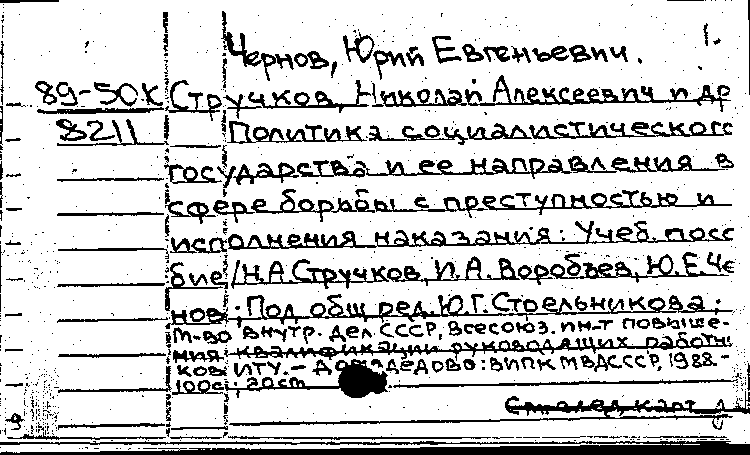 Чернов, Юрий Евгеньевич. 1.
89-50К Стручков, Николай Алексеевич и др
8211 Политика социалистическог
государства и ее направления в
сфере борьбы с преступностью и
исполнения наказания: Учеб. посо
бие / Н.А.Стручков, И.А.Воробьев, Ю.Е.Че
нов; Под общ ред. Ю.Г.Стрельникова;
М-во внутр. дел СССР, Всесоюз. ин-т повыше-
ния квалификации руководящих работни
ков ИТУ. – Домодедово: ВИПК МВД СССР, 1988.–
100с.; 20см
См. след. карт.